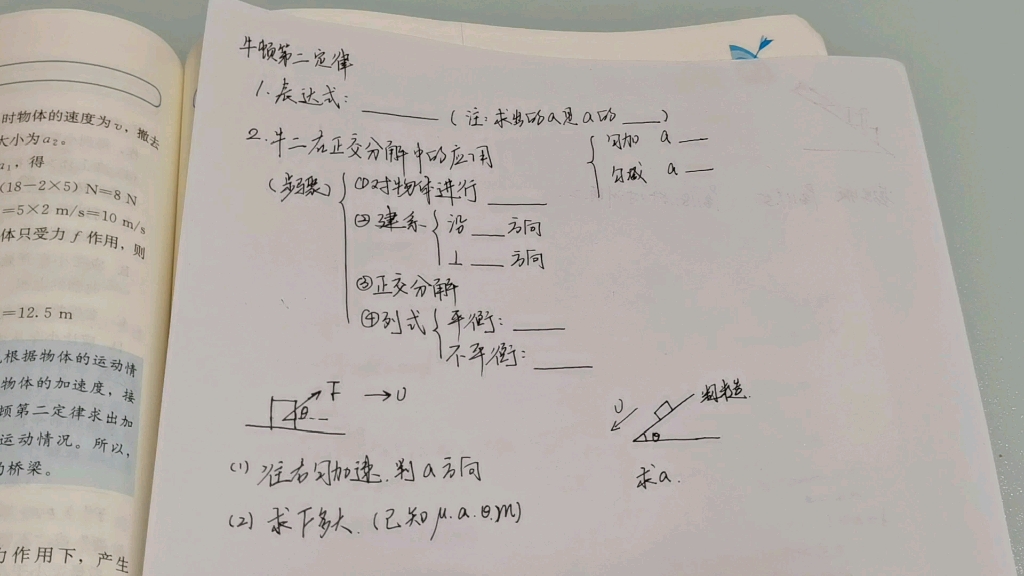 时物体的速度为v,撤去
大小为a₂。
a₁,得
(18-2×5) N=8 N
=5×2 m/s=10 m/s
体只受力 f 作用,则
=12.5 m
根据物体的运动情
物体的加速度,接
顿第二定律求出加
运动情况。所以,
桥梁。
力作用下,产生
牛顿第二定律
1. 表达式: ______ (注:求出的a是a的 ___)
匀加 a __
匀减 a __
2. 牛二在正交分解中的应用
(步骤)
①对物体进行 ____
②建系
沿 ___ 方向
⊥ ___ 方向
③正交分解
④列式
平衡: ____
不平衡: ____
F
→υ
θ
υ
粗糙
θ
(1) 往右匀加速,判a方向
求a.
(2) 求F多大. (已知μ.a.θ.m)